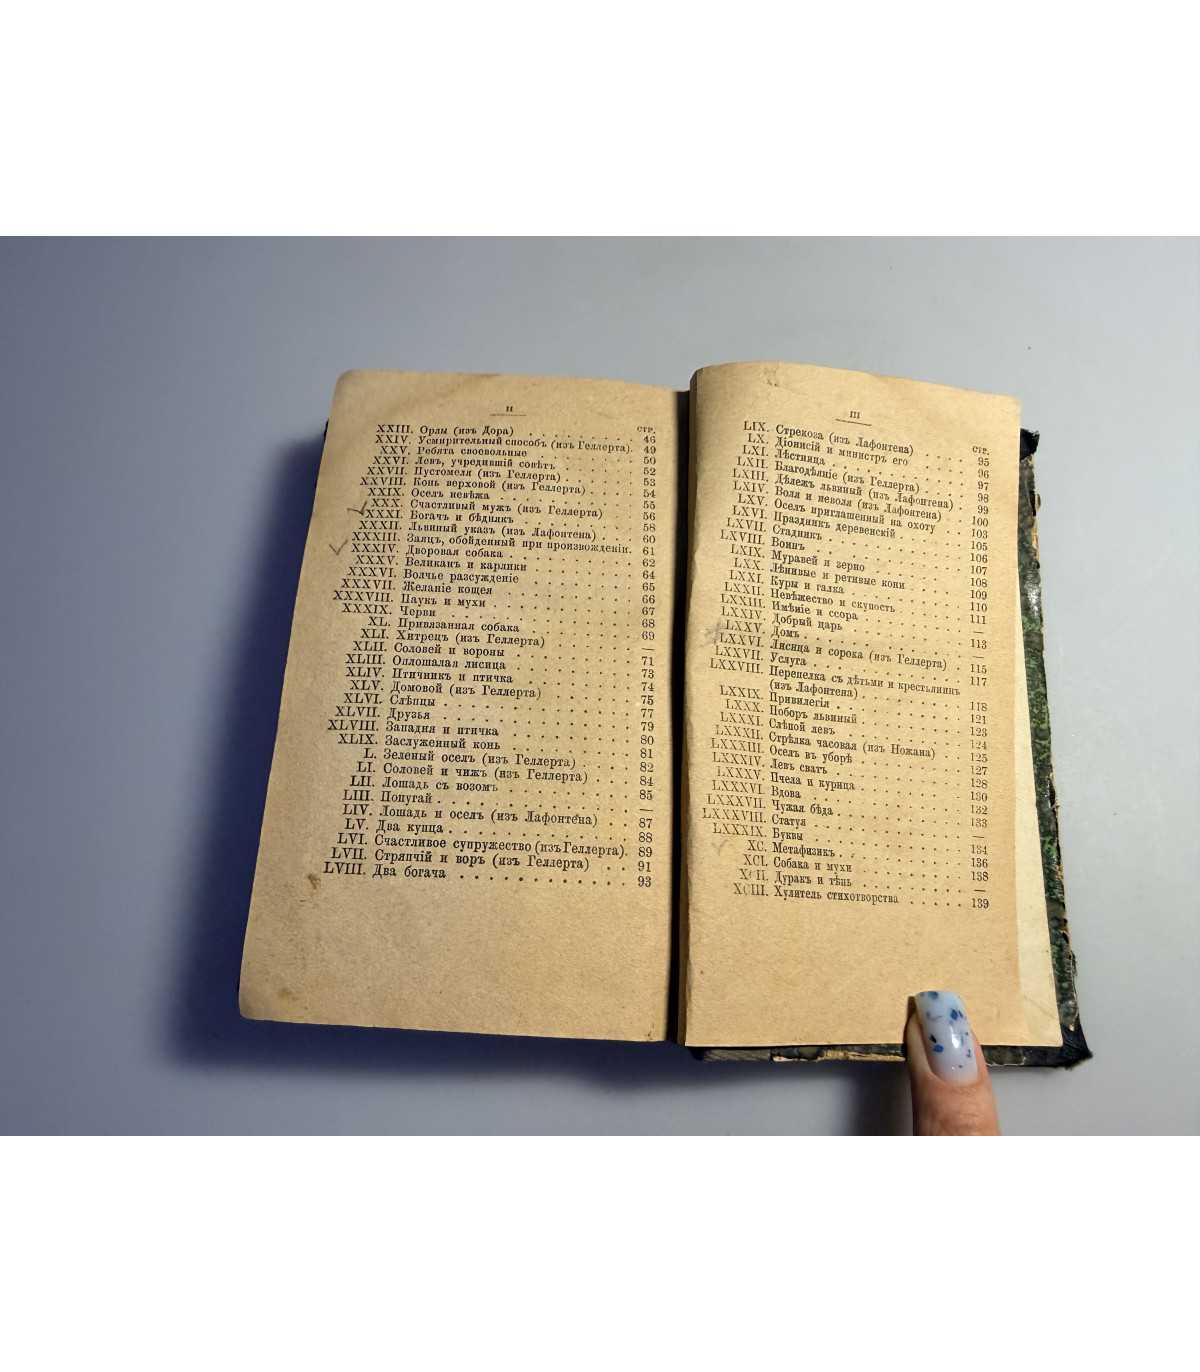 II
стр.
XXIII. Орлы (изъ Дора) . . . . . . . . . 46
XXIV. Усмирительный способъ (изъ Геллерта). 49
XXV. Ребята своевольные . . . . . . . 50
XXVI. Левъ, учредившій совѣтъ . . . . . . 52
XXVII. Пустомеля (изъ Геллерта) . . . . . . 53
XXVIII. Конь верховой (изъ Геллерта) . . . . 54
XXIX. Оселъ невѣжа . . . . . . . . . 55
XXX. Счастливый мужъ (изъ Геллерта) . . . 56
XXXI. Богачъ и бѣднякъ . . . . . . . . 58
XXXII. Львиный указъ (изъ Лафонтена) . . . 60
XXXIII. Заяцъ, обойденный при произвожденіи. 61
XXXIV. Дворовая собака . . . . . . . . 62
XXXV. Великанъ и карлики . . . . . . . 64
XXXVI. Волчье разсужденіе . . . . . . . 65
XXXVII. Желаніе кощея . . . . . . . . 66
XXXVIII. Паукъ и мухи . . . . . . . . . 67
XXXIX. Черви . . . . . . . . . . . 68
XL. Привязанная собака . . . . . . . 69
XLI. Хитрецъ (изъ Геллерта) . . . . . . —
XLII. Соловей и вороны . . . . . . . . 71
XLIII. Оплошалая лисица . . . . . . . . 73
XLIV. Птичникъ и птичка . . . . . . . 74
XLV. Домовой (изъ Геллерта) . . . . . . 75
XLVI. Слѣпцы . . . . . . . . . . . 77
XLVII. Друзья . . . . . . . . . . . 79
XLVIII. Западня и птичка . . . . . . . . 80
XLIX. Заслуженный конь . . . . . . . . 81
L. Зеленый оселъ (изъ Геллерта) . . . . 82
LI. Соловей и чижъ (изъ Геллерта) . . . 84
LII. Лошадь съ возомъ . . . . . . . . 85
LIII. Попугай . . . . . . . . . . . —
LIV. Лошадь и оселъ (изъ Лафонтена) . . 87
LV. Два купца . . . . . . . . . . 88
LVI. Счастливое супружество (изъ Геллерта). 89
LVII. Стряпчій и воръ (изъ Геллерта) . . . 91
LVIII. Два богача . . . . . . . . . . 93
III
стр.
LIX. Стрекоза (изъ Лафонтена) . . . . . 95
LX. Діонисій и министръ его . . . . . 96
LXI. Лѣстница . . . . . . . . . . 97
LXII. Благодѣяніе (изъ Геллерта) . . . . . 98
LXIII. Дѣлежъ львиный (изъ Лафонтена) . . 99
LXIV. Воля и неволя (изъ Лафонтена) . . . 100
LXV. Оселъ приглашенный на охоту . . . 103
LXVI. Праздникъ деревенскій . . . . . . 105
LXVII. Стадникъ . . . . . . . . . . 106
LXVIII. Воинъ . . . . . . . . . . . 107
LXIX. Муравей и зерно . . . . . . . . 108
LXX. Лѣнивые и ретивые кони . . . . . 109
LXXI. Куры и галка . . . . . . . . . 110
LXXII. Невѣжество и скупость . . . . . . 111
LXXIII. Имѣніе и ссора . . . . . . . . —
LXXIV. Добрый царь . . . . . . . . . 113
LXXV. Домъ . . . . . . . . . . . —
LXXVI. Лисица и сорока (изъ Геллерта) . . . 115
LXXVII. Услуга . . . . . . . . . . . 117
LXXVIII. Перепелка съ дѣтьми и крестьянинъ
(изъ Лафонтена) . . . . . . . . 118
LXXIX. Привилегія . . . . . . . . . . 121
LXXX. Поборъ львиный . . . . . . . . 123
LXXXI. Слѣпой левъ . . . . . . . . . 124
LXXXII. Стрѣлка часовая (изъ Ножана) . . . 125
LXXXIII. Оселъ въ уборѣ . . . . . . . . 127
LXXXIV. Левъ сватъ . . . . . . . . . 128
LXXXV. Пчела и курица . . . . . . . . 130
LXXXVI. Вдова . . . . . . . . . . . 132
LXXXVII. Чужая бѣда . . . . . . . . . 133
LXXXVIII. Статуя . . . . . . . . . . . —
LXXXIX. Буквы . . . . . . . . . . . 134
XC. Метафизикъ . . . . . . . . . . 136
XCI. Собака и мухи . . . . . . . . . 138
XCII. Дуракъ и тѣнь . . . . . . . . . —
XCIII. Хулитель стихотворства . . . . . 139